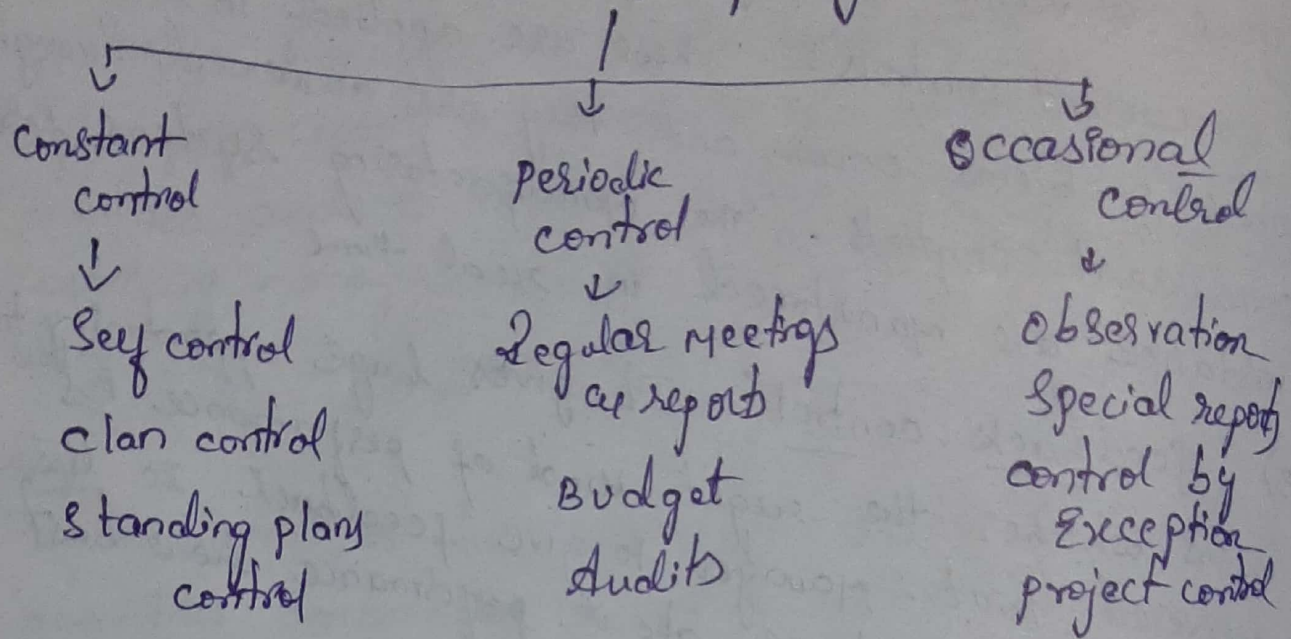 Constant
control
Self control
clan control
Standing plans
control
Periodic
control
Regular Meetings
report
Budget
Audits
Occasional
control
Observation
Special reports
control by
Exception
project control